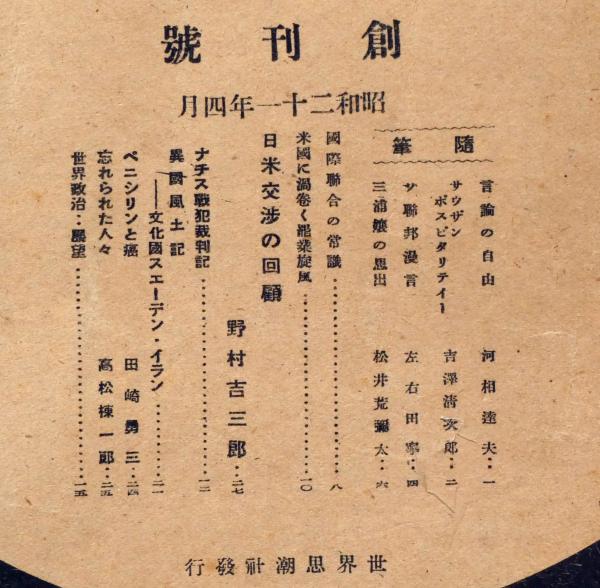 創刊號
昭和二十一年四月
隨筆
言論の自由 河相達夫‥一
サウザン
ホスピタリテイー 吉澤淸次郎‥二
サ聯邦漫言 左右田寧‥四
三浦嬢の思出 松井荒彌太‥六
國際聯合の常識‥‥‥‥‥‥八
米國に渦卷く罷業旋風‥‥‥‥‥‥一〇
日米交渉の回顧
野村吉三郎‥二七
ナチス戰犯裁判記‥‥‥‥‥‥一二
異國風土記
――文化國スエーデン・イラン‥‥‥‥二一
ペニシリンと癌 田崎勇三‥二四
忘れられた人々 高松棟一郎‥二五
世界政治・展望‥‥‥‥‥‥一五
世界思潮社發行